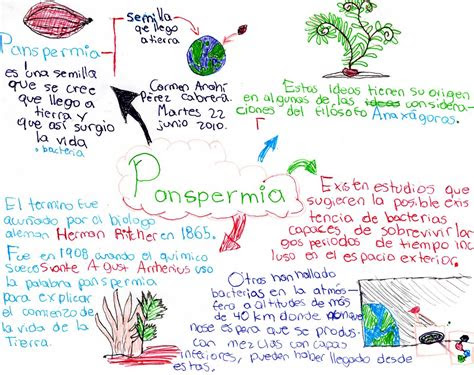 Panspermia
es una semilla
que se cree
que llego a
tierra y
que así surgio
la vida
bacteria
semilla
qe llego
a tierra
Carmen Anahí
Pérez Cabrera.
Martes 22
junio 2010.
Estas ideas tienen su origen
en algunas de las ideas considera-
ciones del filósofo Anaxágoras.
Panspermia
El termino fue
acuñado por el biologo
aleman Herman Ritcher en 1865.
Fue en 1908 cuando el quimico
sueco Svante August Arrhenius uso
la palabra panspermia
para explicar
el comienzo de
la vida de la
Tierra.
Existen estudios que
sugieren la posible exis
tencia de bacterias
capaces de sobrevivir lar
gos periodos de tiempo inc
luso en el espacio exterior.
Otros han hallado
bacterias en la atmós-
fera a altitudes de más
de 40 km donde aunque
nose espera que se produs.
con mezclas con capas
inferiores, pueden haber llegado desde
estas.